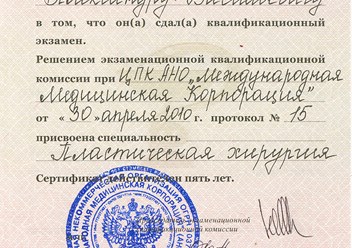 в том, что он(а) сдал(а) квалификационный
экзамен.
Решением экзаменационной квалификационной
комиссии при ЦПК АНО „Международная
Медицинская Корпорация"
от « 30 » апреля 2010 г. протокол № 15
присвоена специальность
Пластическая хирургия
Сертификат действителен пять лет.
экзаменационной
комиссии